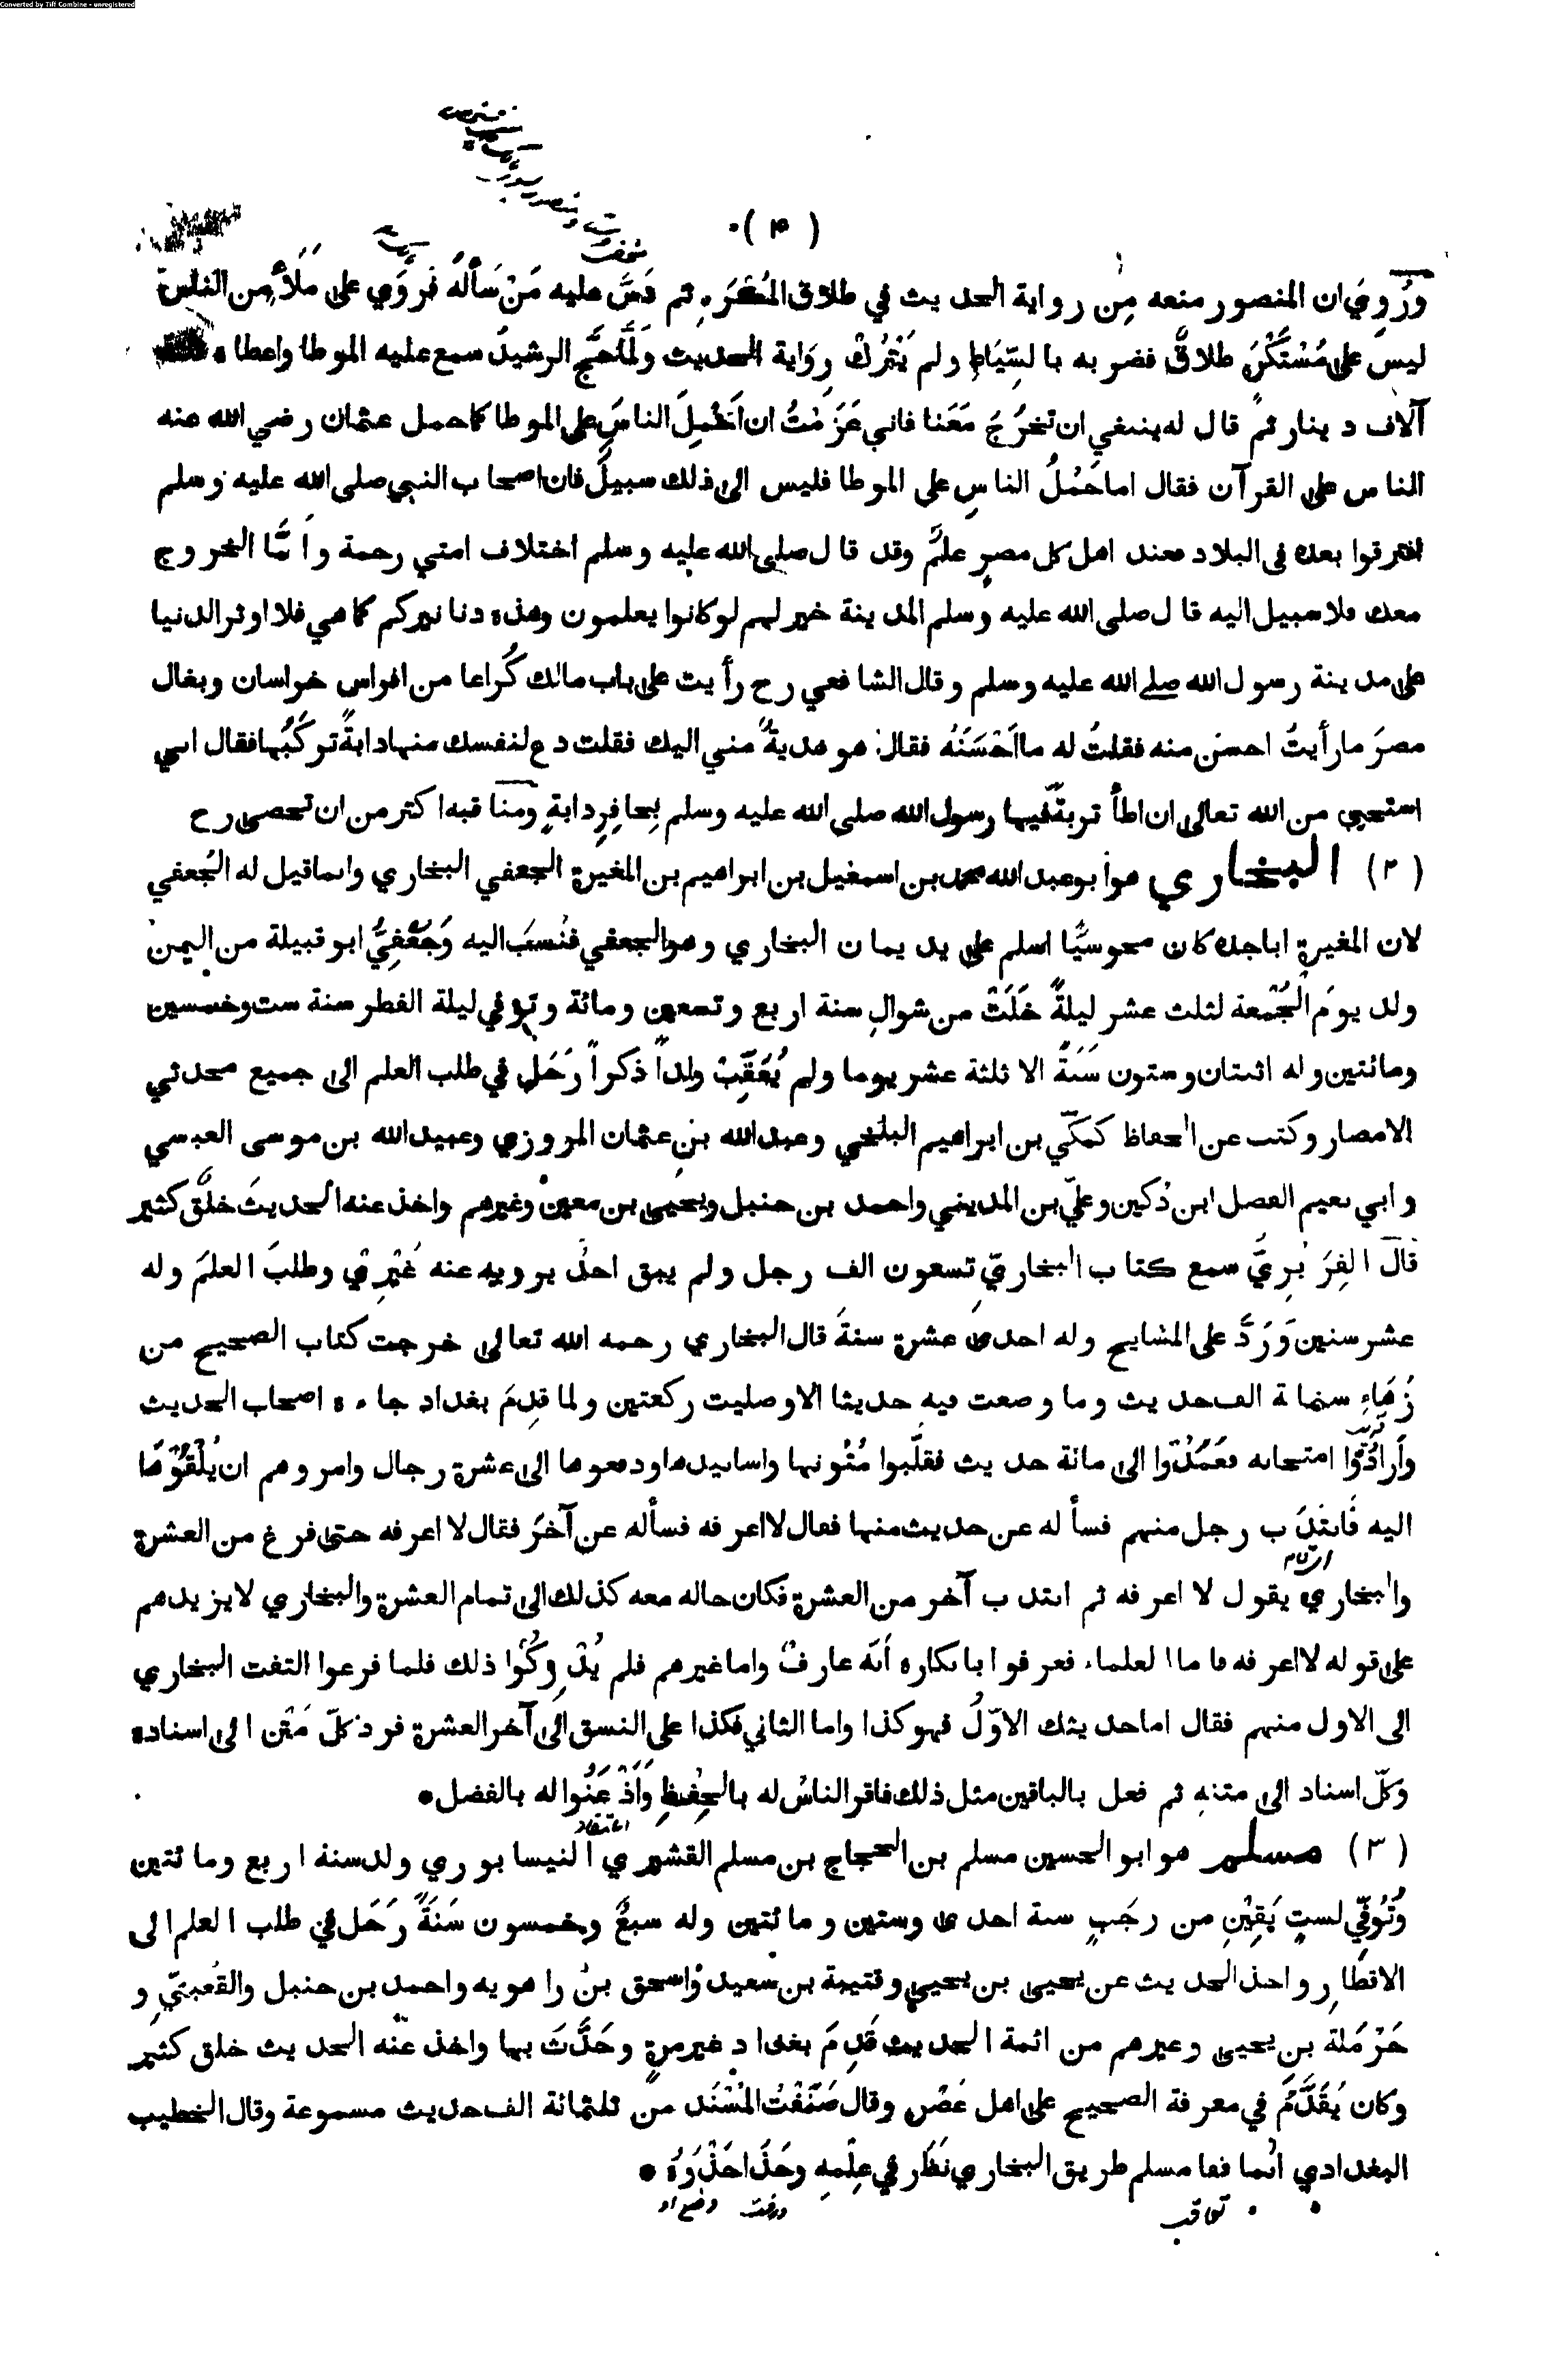 Converted by Tiff Combine - unregistered
(٤)
ورُوِيَ ان المنصور منعه مِن رواية الحديث في طلاق المُكْرَهِ ثم دَسَّ عليه مَنْ سَأَلَهُ فَرَوَى على مَلَأٍ مِن الناس
ليس على مُسْتَكْرَهٍ طلاقٌ فضربه بالسِّيَاطِ ولم يَتْرُكْ رِوَاية الحديث ولَمَّا حَجَّ الرشيدُ سمع عليه الموطا واعطاه
آلاف دينار ثم قال له ينبغي ان تخرُجَ مَعَنا فاني عَزَمْتُ ان اَحْمِلَ الناسَ على الموطا كما حمل عثمان رضي الله عنه
الناس على القرآن فقال اما حَمْلُ الناسِ على الموطا فليس الى ذلك سبيلٌ فان اصحاب النبي صلى الله عليه وسلم
افترقوا بعده في البلاد فعند اهل كل مصرٍ علمٌ وقد قال صلى الله عليه وسلم اختلاف امتي رحمة واَمَّا الخروج
معك فلا سبيل اليه قال صلى الله عليه وسلم المدينة خير لهم لو كانوا يعلمون وهذه دنانيركم كما هي فلا اوثر الدنيا
على مدينة رسول الله صلى الله عليه وسلم وقال الشافعي رح رأيت على باب مالك كُراعا من افراس خراسان وبغال
مصرَ ما رأيتُ احسن منه فقلتُ له ما اَحْسَنَهُ فقال هو هديةٌ مني اليك فقلت دع لنفسك منها دابةً تركَبُها فقال اني
استحيي من الله تعالى ان اطأ تربةً فيها رسول الله صلى الله عليه وسلم بِحافِرِ دابةٍ ومناقبه اكثر من ان تحصى رح
(٢) البخاري هو ابو عبد الله محمد بن اسمعيل بن ابراهيم بن المغيرة الجعفي البخاري وانما قيل له الجُعفي
لان المغيرة ابا جده كان مجوسيًّا اسلم على يد يمان البخاري وهو الجعفي فنُسبَ اليه وَجُعْفِيُّ ابو قبيلة من اليمن
ولد يومَ الْجُمْعة لثلث عشر ليلةً خَلَتْ من شوالِ سنة اربع وتسعين ومائة وتوفي ليلة الفطر سنة ست وخمسين
ومائتين وله اثنتان وستون سَنَةً الا ثلثة عشر يوما ولم يُعَقِّبْ ولداً ذكراً رَحَل في طلب العلم الى جميع محدثي
الامصار وكتب عن الحفاظ كمكّي بن ابراهيم البلخي وعبد الله بن عثمان المروزي وعبيد الله بن موسى العبسي
وابي نعيم الفضل ابن دُكين وعليّ بن المديني واحمد بن حنبل ويحيى بن معين وغيرهم واخذ عنه الحديثَ خلقٌ كثير
قال الفِرَبْرِيُّ سمع كتاب البخاريِّ تسعون الف رجل ولم يبق احدٌ يرويه عنه غَيْرِيْ وطلبَ العلمَ وله
عشر سنين وَرَدَّ على المشايخ وله احدى عشرة سنةَ قال البخاري رحمه الله تعالى خرجت كتاب الصحيح من
زُهَاءِ ستمائة الف حديث وما وضعت فيه حديثا الا وصليت ركعتين ولما قدِمَ بغداد جاءه اصحاب الحديث
وَأَرادُوْا امتحانه فعَمَدُوْا الى مائة حديث فقلَّبوا مُتُونها واسانيدها ودفعوها الى عشرة رجال وامروهم ان يُلْقُوْهَا
اليه فَانتَدَب رجل منهم فسأله عن حديث منها فقال لا اعرفه فسأله عن آخرَ فقال لا اعرفه حتى فرغ من العشرة
والبخاري يقول لا اعرفه ثم انتدب آخر من العشرة فكان حاله معه كذلك الى تمام العشرة والبخاري لا يزيدهم
على قوله لا اعرفه فاما العلماء فعرفوا بانكاره أنّه عارفٌ واما غيرهم فلم يُدْرِكُوْا ذلك فلما فرغوا التفت البخاري
الى الاول منهم فقال اما حديثك الاوّلُ فهو كذا واما الثاني فكذا على النسق الى آخر العشرة فرد كلّ مَتْن الى اسناده
وكلّ اسناد الى متنه ثم فعل بالباقين مثل ذلك فاقر الناسُ له بالحِفْظِ وَأَذْعَنُوا له بالفضل
(٣) مسلم هو ابو الحسين مسلم بن الحجاج بن مسلم القشيري النيسابوري ولد سنة اربع ومائتين
وَتُوُفِّيَ لستٍ بَقِيْنِ من رجَبٍ سنة احدى وستين ومائتين وله سبعٌ وخمسون سَنَةً رَحَل في طلب العلم الى
الاقطارِ واخذ الحديث عن يحيى بن يحيى وقتيبة بن سعيد واسحق بن راهويه واحمد بن حنبل والقَعنبيّ و
حَرْمَلة بن يحيى وغيرهم من ائمة الحديث قَدِمَ بغداد غير مرةٍ وحَدَّثَ بها واخذ عنه الحديث خلق كثير
وكان يُقَدَّمُ في معرفة الصحيح على اهل عَصْره وقال صَنَّفْتُ المُسْنَد من ثلثمائة الف حديث مسموعة وقال الخطيب
البغدادي انما قفا مسلم طريق البخاري نَظَر في عِلْمِهِ وحَذَا حَذْوَهُ